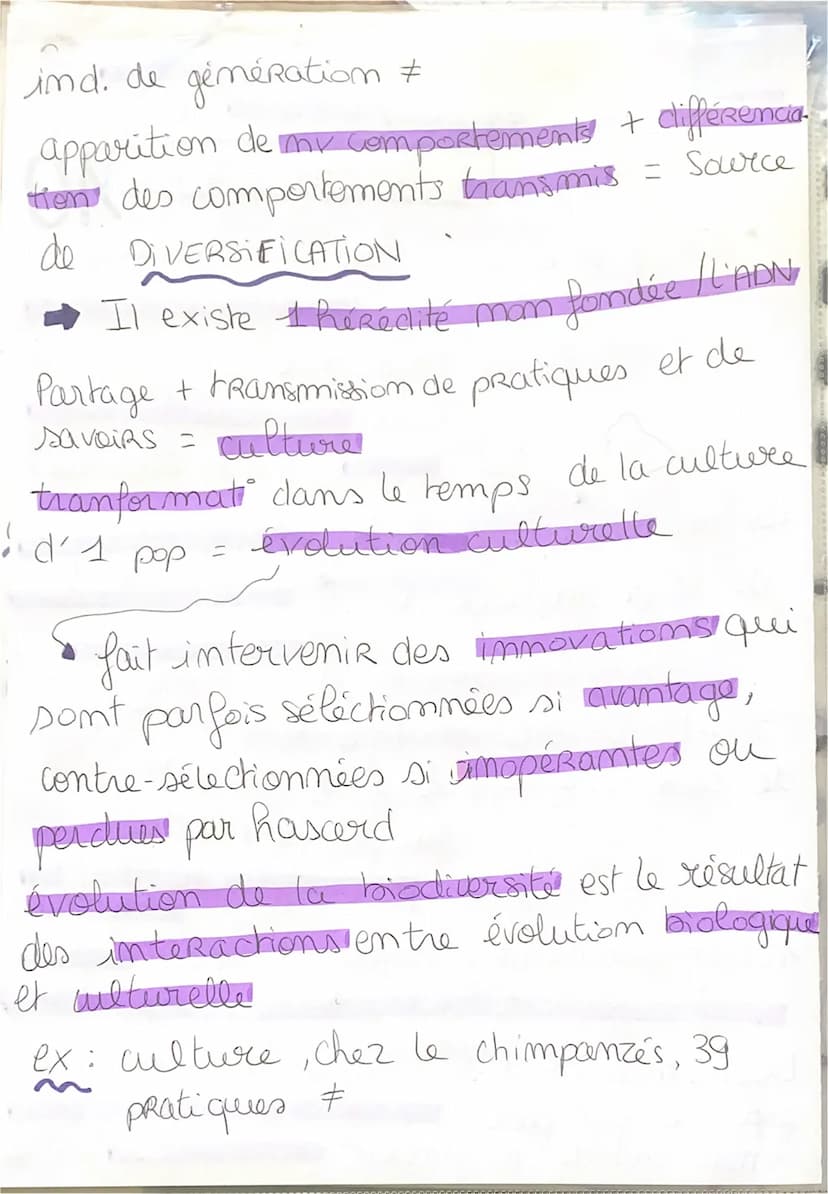 ind. de génération ≠
apparition de nv comportements + différencia-
tion des comportements transmis = source
de DiVERSiFiCATiON
➡ Il existe 1 hérédité non fondée / l'ADN
Partage + transmission de pratiques et de
savoirs = culture
tranformat° dans le temps de la culture
! d'1 pop = évolution culturelle
fait intervenir des innovations qui
sont parfois séléctionnées si avantage,
contre-sélectionnées si inopérantes ou
perdues par hasard
évolution de la biodiversité est le résultat
des interactions entre évolution biologique
et culturelle
ex : culture, chez le chimpanzés, 39
pratiques ≠